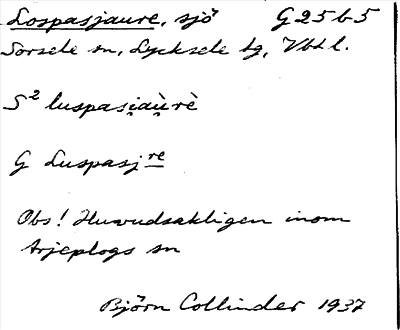 Lospasjaure, sjö G25b5
Sorsele sn, Lycksele lg, Vbtl.
S² luspasi̯au̯rè
G Luspasjre
Obs! Huvudsakligen inom
Arjeplogs sn
Björn Collinder 1937